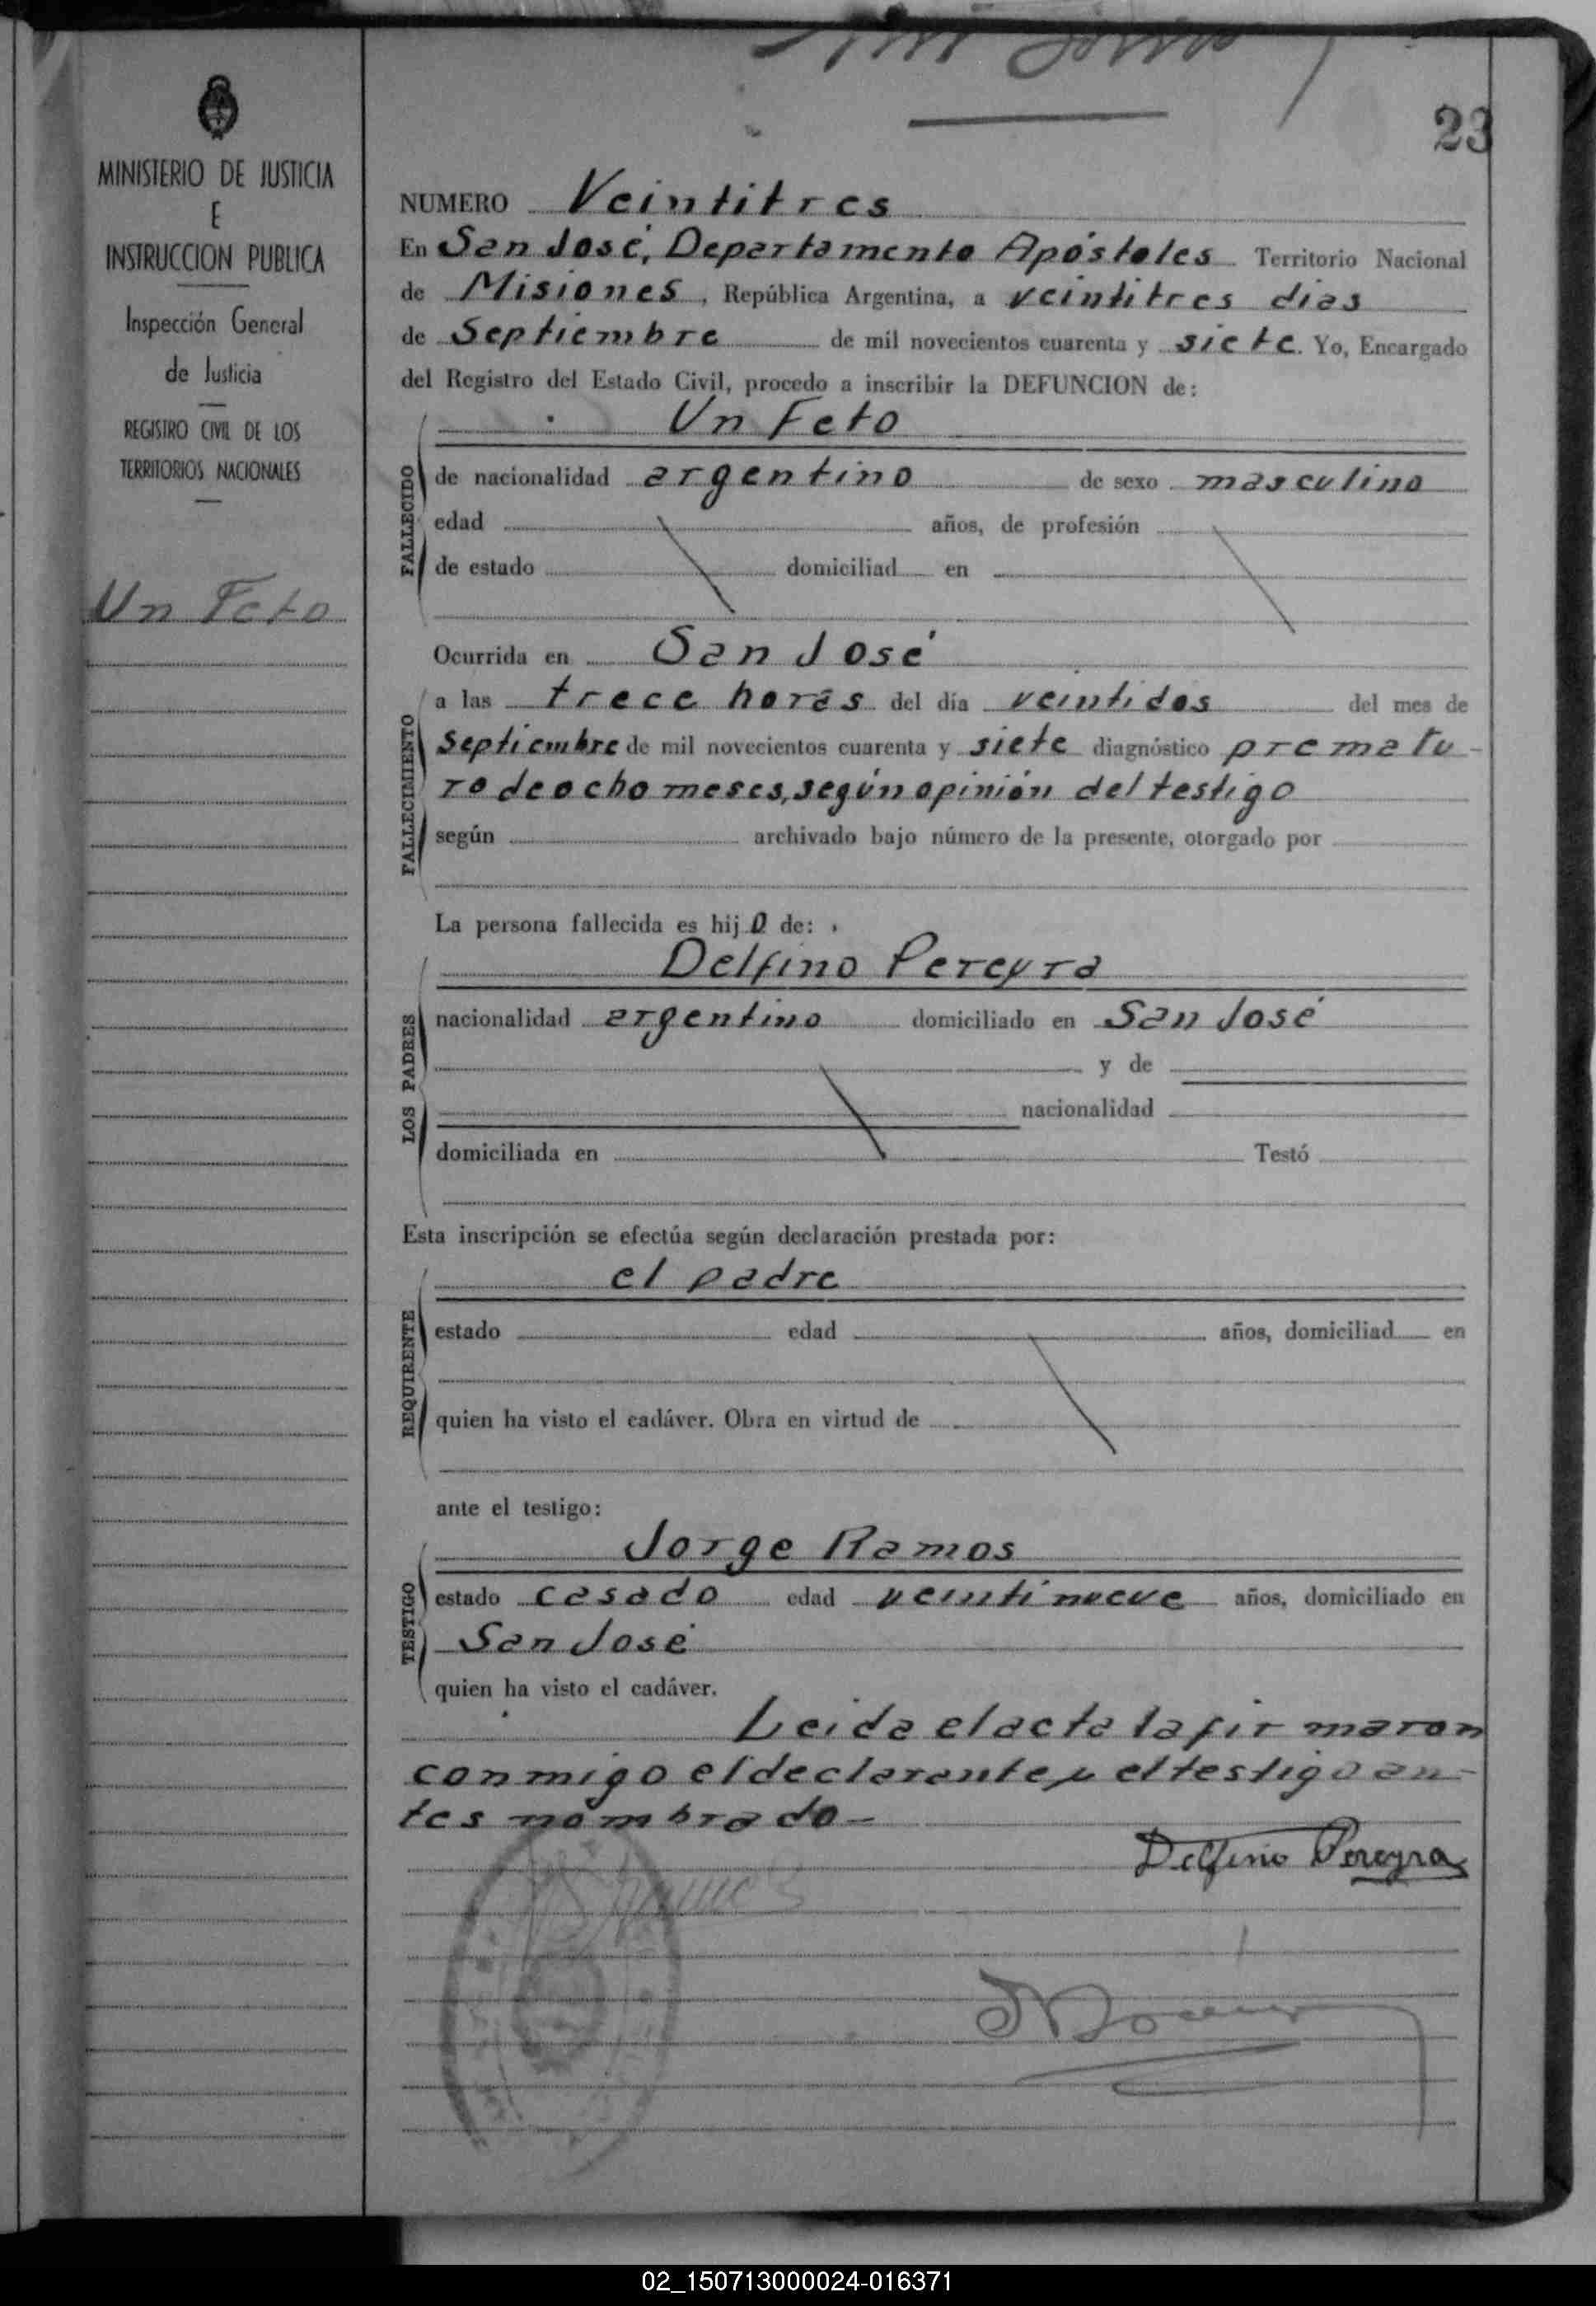 23
MINISTERIO DE JUSTICIA
E
INSTRUCCION PUBLICA
Inspección General
de Justicia
REGISTRO CIVIL DE LOS
TERRITORIOS NACIONALES
Un Feto
NUMERO Veintitres
En San José, Departamento Apóstoles Territorio Nacional
de Misiones, República Argentina, a veintitres dias
de Septiembre de mil novecientos cuarenta y siete. Yo, Encargado
del Registro del Estado Civil, procedo a inscribir la DEFUNCION de:
Un Feto
FALLECIDO
de nacionalidad argentino de sexo masculino
edad años, de profesión
de estado domiciliad en
Ocurrida en San José
FALLECIMIENTO
a las trece horas del día veintidos del mes de
Septiembre de mil novecientos cuarenta y siete diagnóstico prematu-
ro de ocho meses, según opinión del testigo
según archivado bajo número de la presente, otorgado por
La persona fallecida es hijo de:
LOS PADRES
Delfino Pereyra
nacionalidad argentino domiciliado en San José
y de
nacionalidad
domiciliada en Testó
Esta inscripción se efectúa según declaración prestada por:
REQUIRENTE
el padre
estado edad años, domiciliad en
quien ha visto el cadáver. Obra en virtud de
ante el testigo:
TESTIGO
Jorge Ramos
estado casado edad veintinueve años, domiciliado en
San José
quien ha visto el cadáver.
Leida el acta la firmaron
conmigo el declarante y el testigo an-
tes nombrado-
Delfino Pereyra
02_150713000024-016371